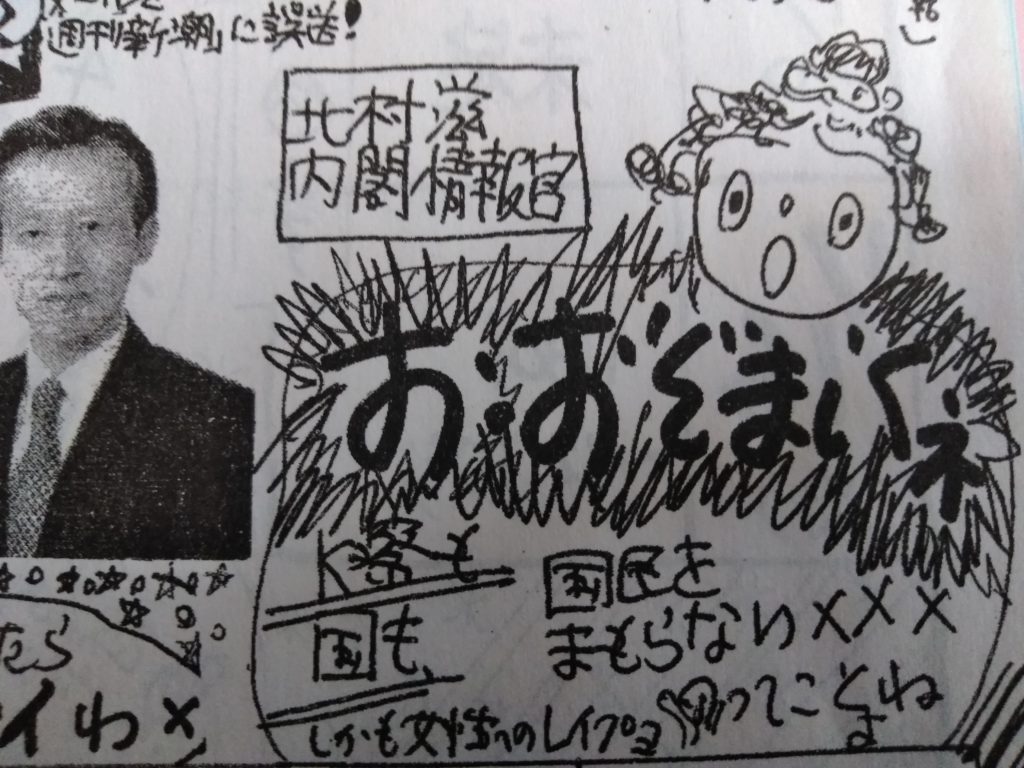 メールを
週刊「新潮」に誤送!
北村 滋
内閣情報官
お・おぞましくネ
K察も
国も、
国民を
まもらない×××
ってことよね
しかも女性へのレイプヨ
たら
イわ×